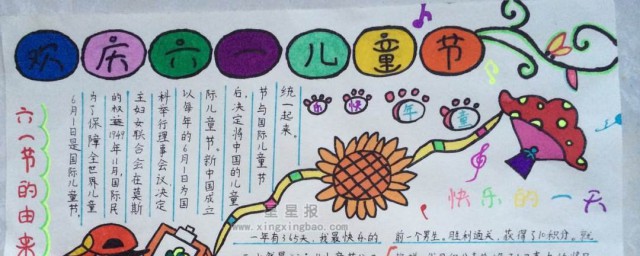 欢庆六一儿童节
六一节的由来
6月1日是国际儿童节,
为了保障全世界儿童
的权益1949年11月,国际民
主妇女联合会在莫斯
科举行理事会议,决定
以每年的6月1日为国
际儿童节。新中国成立
后,决定将中国的儿童
节与国际儿童节
统一起来。
乐快年童
快乐的一天
星星报
www.xingxingbao.com
一年有365天,我最快乐的
前一个男生。胜利通关,获得了10积分。